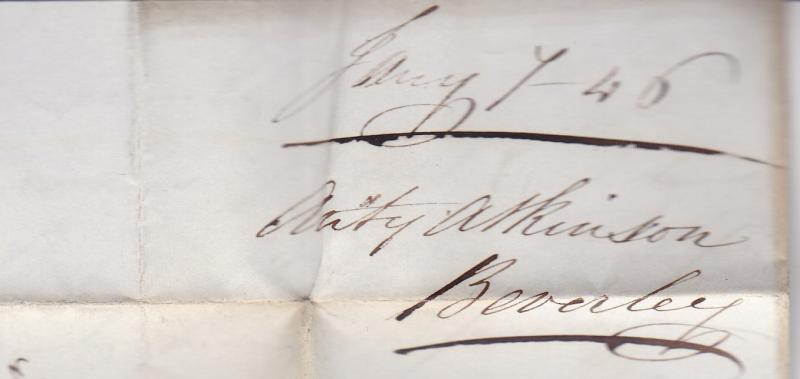 Jany 7-46
Anty Atkinson
Beverley